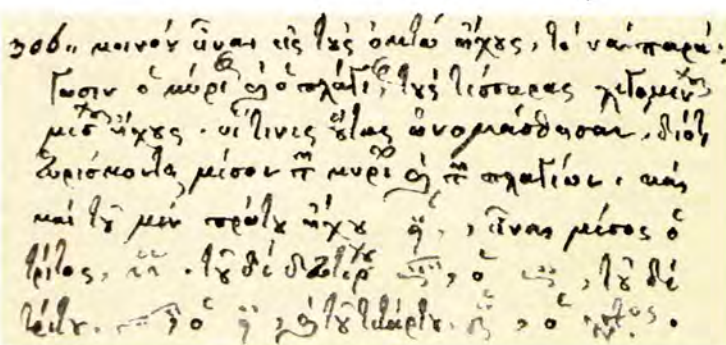 306,, κοινὸν εἶναι εἰς τοὺς ὀκτὼ ἤχους, τὸ νὰ παρά-
γωσιν ὁ κύριος καὶ ὁ πλάγιος, τοὺς τέσσαρας λεγομένους
μέσους ἤχους· οἵτινες οὕτως ὠνομάσθησαν, διότι
εὑρίσκονται μέσον τῶν κυρίων καὶ τῶν πλαγίων.
καὶ τοῦ μὲν πρώτου ἤχου, εἶναι μέσος ὁ
τρίτος, τοῦ δὲ δευτέρου, ὁ, τοῦ δὲ
τρίτου, ὁ, καὶ τοῦ τετάρτου, ὁ